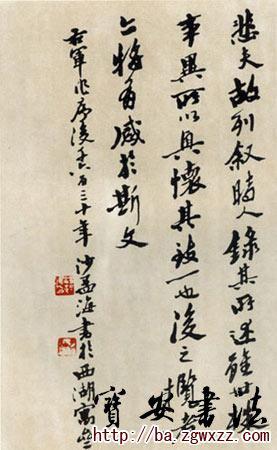 悲夫故列叙時人錄其所述雖世殊
事異所以興懷其致一也後之覽者
亦將有感於斯文
右軍作序後千六百三十年沙孟海書於西湖寓
寶安書
http://ba.zgwxzz.com